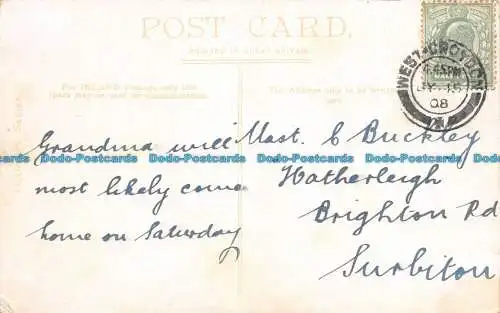 POST CARD.
PRINTED IN GREAT BRITAIN
For INLAND Postage only this
Space may be used for
The Address only to be
WEST CROYDON
08
Grandma will
most likely come
home on Saturday
Mast. C Buckley
Hatherleigh
Brighton Rd
Surbiton
Dodo-Postcards Dodo-Postcards Dodo-Postcards Dodo-Postcards Dodo-Postcards